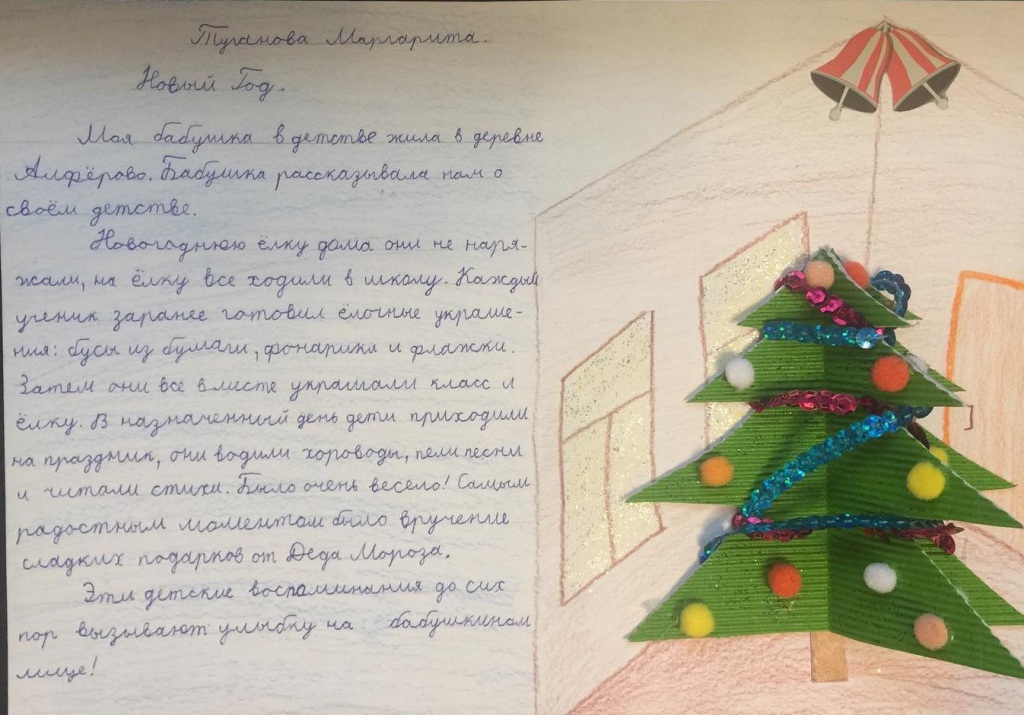 Туганова Маргарита.
Новый Год.
Моя бабушка в детстве жила в деревне
Алфёрово. Бабушка рассказывала нам о
своём детстве.
Новогоднюю ёлку дома они не наря-
жали, на ёлку все ходили в школу. Каждый
ученик заранее готовил ёлочные украше-
ния: бусы из бумаги, фонарики и флажки.
Затем они все вместе украшали класс и
ёлку. В назначенный день дети приходили
на праздник, они водили хороводы, пели песни
и читали стихи. Было очень весело! Самым
радостным моментом было вручение
сладких подарков от Деда Мороза.
Эти детские воспоминания до сих
пор вызывают улыбку на бабушкином
лице!